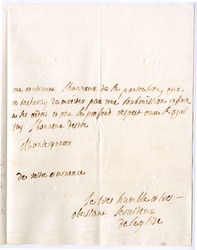 me continuer l'honneur de sa protection, que
je tacheray de meriter par une soubmission
a ses ordres et par le profond respect avec le quel
jay l'honneur destre
Monseigneur
de votre eminence
Le tres humble et tres
obeissant serviteur